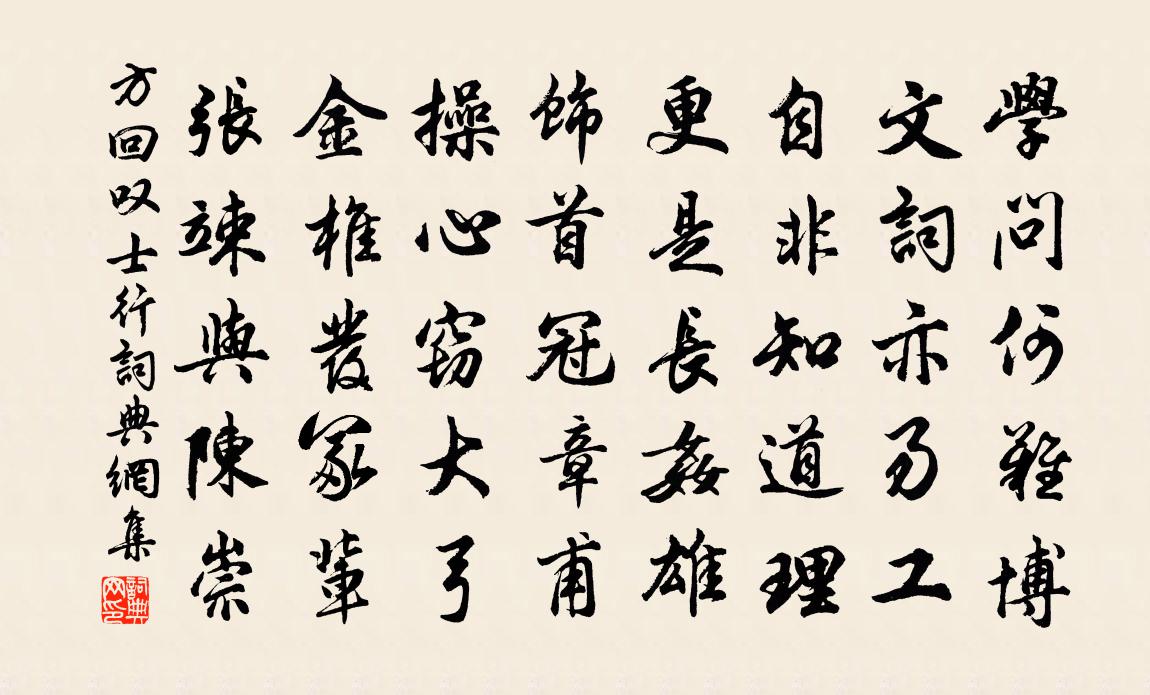 學問何難博
文詞亦易工
自非知道理
更是長姦雄
飾首冠章甫
操心竊大弓
金椎發冢輩
張竦與陳崇
方回叹士行詞典網集
詞典
网印